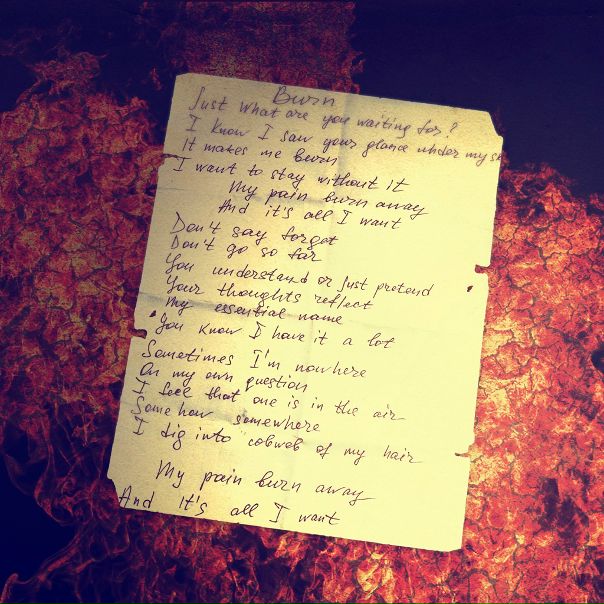 Burn
Just what are you waiting for?
I know I saw your glance under my
It makes me burn
I want to stay without it
My pain burn away
And it's all I want
Don't say forget
Don't go so far
You understand or just pretend
Your thoughts reflect
My essential name
You know I have it a lot
Sometimes I'm nowhere
On my own question
I feel that one is in the air
Somehow somewhere
I dig into cobweb of my hair
My pain burn away
And it's all I want